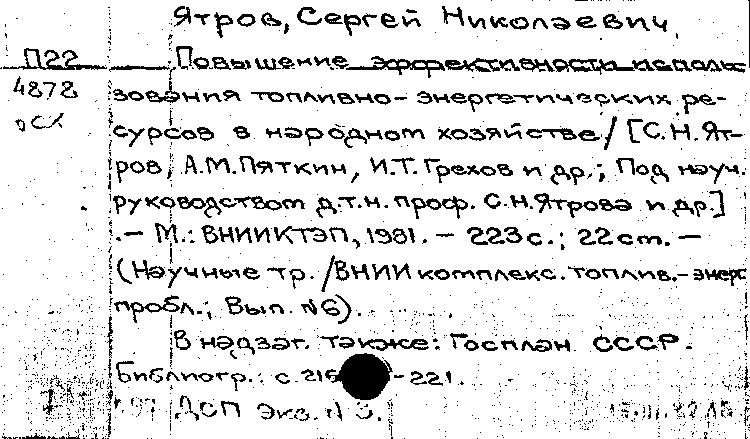 Ятров, Сергей Николаевич.
П22 Повышение эффективности исполь
4878 зования топливно-энергетических ре-
сурсов в народном хозяйстве/ [С.Н.Ят-
ров, А.М.Пяткин, И.Т.Грехов и др.; Под науч.
руководством д.т.н. проф. С.Н.Ятрова и др.]
.— М.: ВНИИКТЭП, 1981. — 223с.; 22 см. —
(Научные тр. /ВНИИ комплекс. топлив.-энерг
пробл.; Вып. №6).
В надзаг. также: Госплан СССР.
Библиогр.: с. 216-221.
ДСП Экз. N 3.